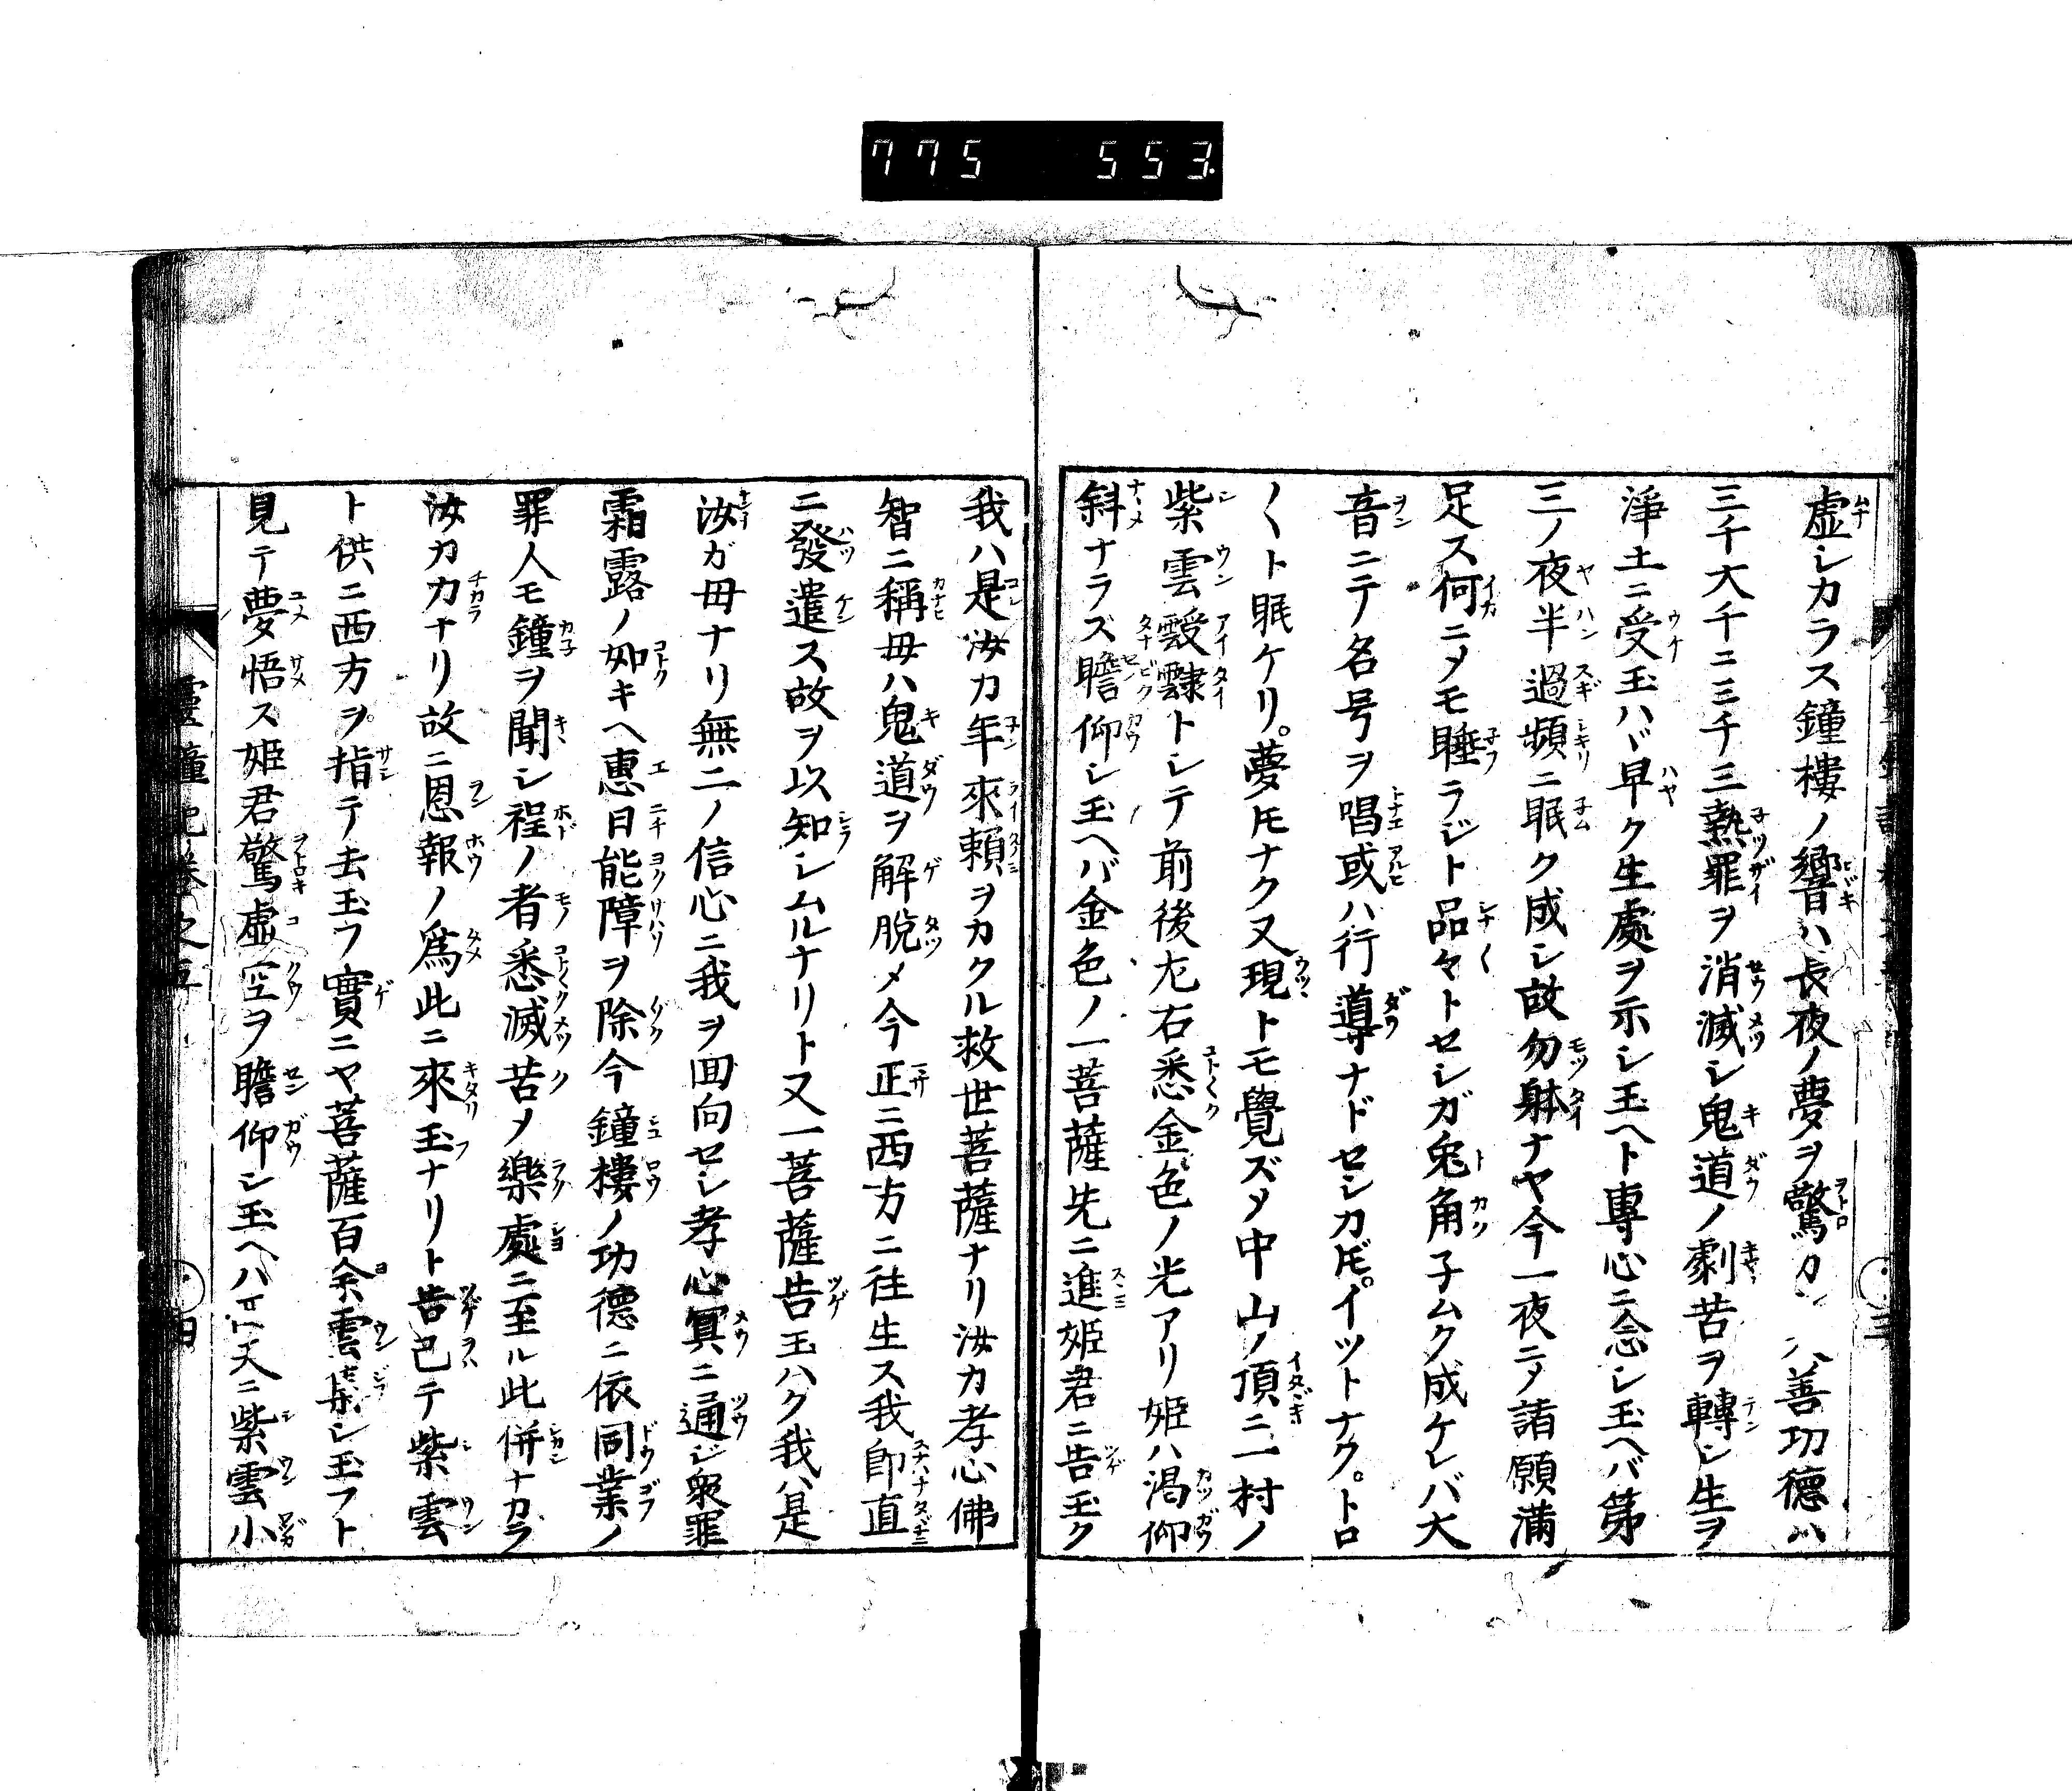 775 553
虚シカラス鐘樓ノ響ハ長夜ノ夢ヲ驚カシ善功德ハ
三千大千ニ三千三熱罪ヲ消滅シ鬼道ノ劇苦ヲ轉シ生ヲ
淨土ニ受玉ハヾ早ク生處ヲ示シ玉ヘト專心ニ念シ玉ヘバ第
三ノ夜半過頻ニ眠ク成シ故勿躰ナヤ今一夜ニメ諸願滿
足ス何ニメモ睡ラジト品々トセシガ兎角子ムク成ケレバ大
音ニテ名号ヲ唱或ハ行導ナドセシカ𪜈イツトナクトロ
〱ト眠ケリ夢𪜈ナク又現トモ覺ズメ中山ノ頂ニ一村ノ
紫雲靉靆トシテ前後左右悉金色ノ光アリ姫ハ渇仰
斜ナラズ瞻仰シ玉ヘバ金色ノ一菩薩先ニ進姫君ニ告玉ク
我ハ是汝カ年來賴ヲカクル救世菩薩ナリ汝カ孝心佛
智ニ稱毋ハ鬼道ヲ解脫メ今正ニ西方ニ往生ス我卽直
ニ發遣ス故ヲ以知シムルナリト又一菩薩告玉ハク我ハ是
汝ガ母ナリ無二ノ信心ニ我ヲ回向セシ孝心冥ニ通ジ衆罪
霜露ノ如キヘ惠日能障ヲ除今鐘樓ノ功德ニ依同業ノ
罪人モ鐘ヲ聞シ程ノ者悉滅苦メ樂處ニ至ル此併ナカラ
汝カ力ナリ故ニ恩報ノ爲此ニ來玉ナリト告已テ紫雲
ト供ニ西方ヲ指テ去玉フ實ニヤ菩薩百余雲ニ乗シ玉フト
見テ夢悟ス姫君驚虛空ヲ瞻仰シ玉ヘハ天ニ紫雲小
靈鐘記卷之五